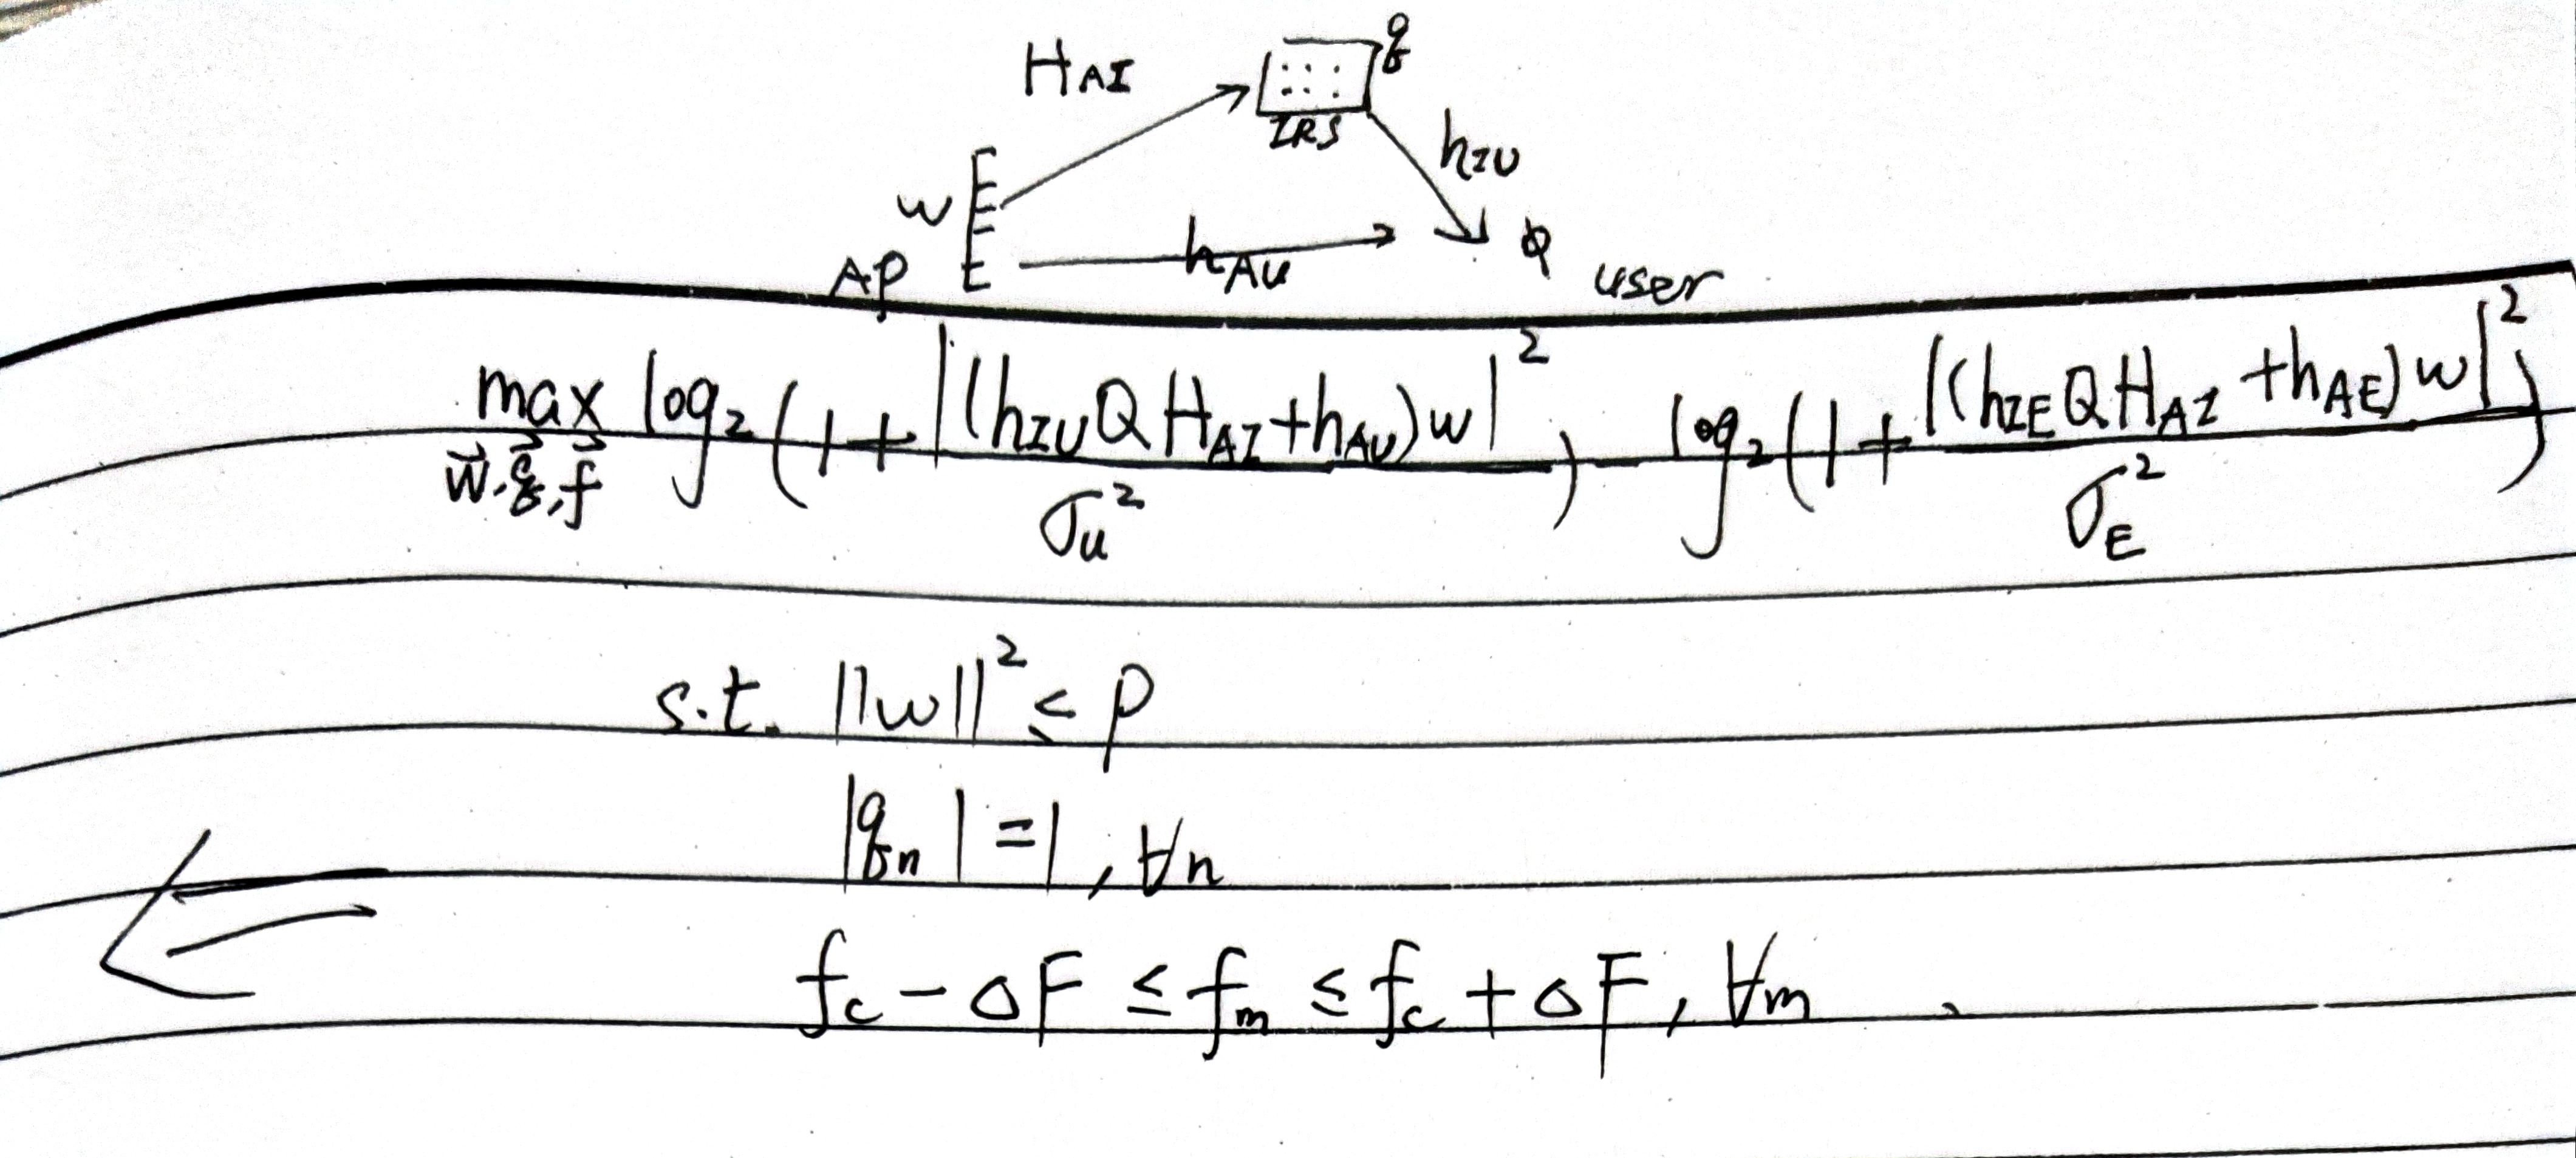 H_AI q
IRS
h_IU
w
AP h_AU user
max_{w⃗,q⃗,f⃗} log₂(1+|(h_IU Q H_AI+h_AU)w|²/σ_u²) - log₂(1+|(h_IE Q H_AI+h_AE)w|²/σ_E²)
s.t. ||w||² ≤ P
|q_n|=1, ∀n
f_c-ΔF ≤ f_m ≤ f_c+ΔF, ∀m